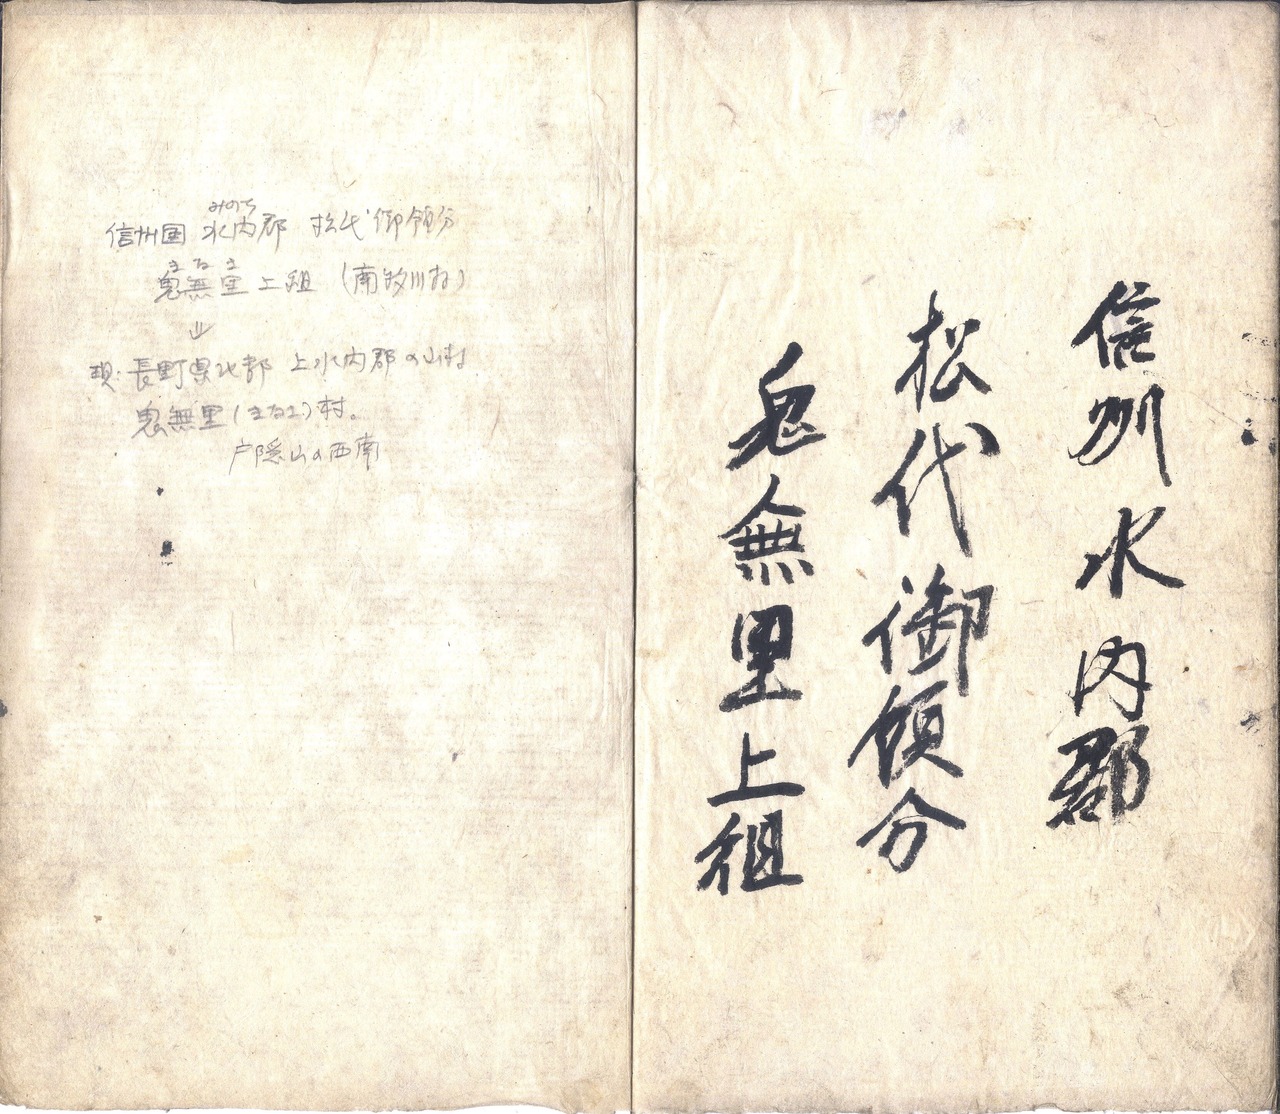 信州水内郡
松代御領分
鬼無里上組
みのち
信州国 水内郡 松代御領分
鬼無里上組 (南牧川村)
現・長野県北部 上水内郡の山村
鬼無里(きなさ)村。
戸隠山の西南